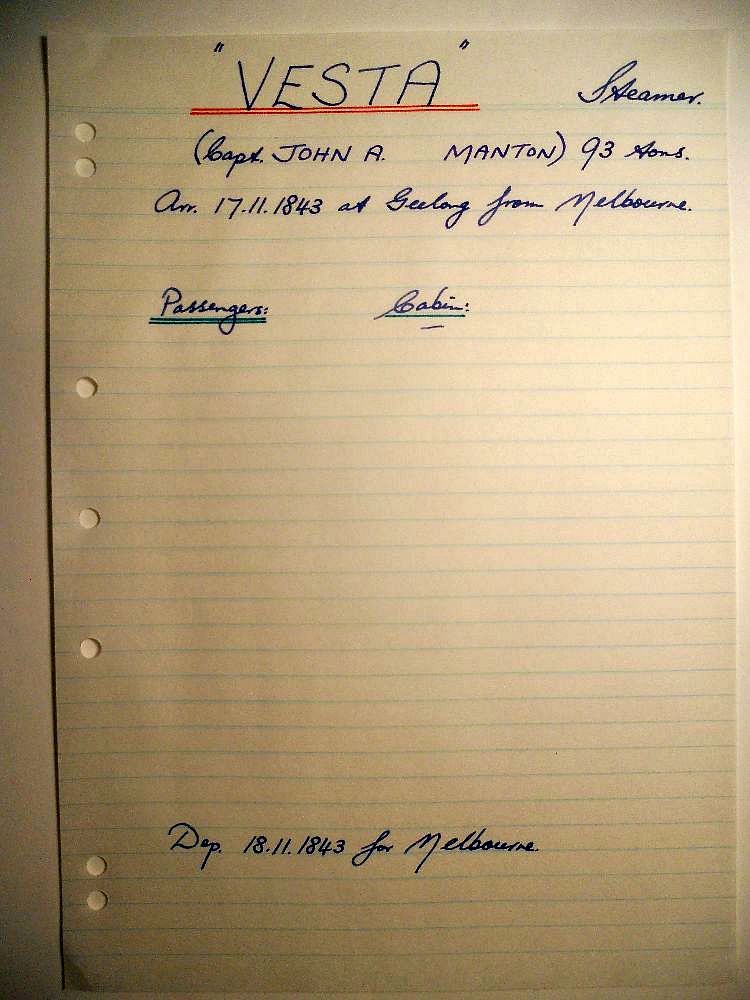 "VESTA" Steamer.
(Capt. JOHN A. MANTON) 93 tons.
Arr. 17.11.1843 at Geelong from Melbourne.
Passengers: Cabin:
Dep. 18.11.1843 for Melbourne.